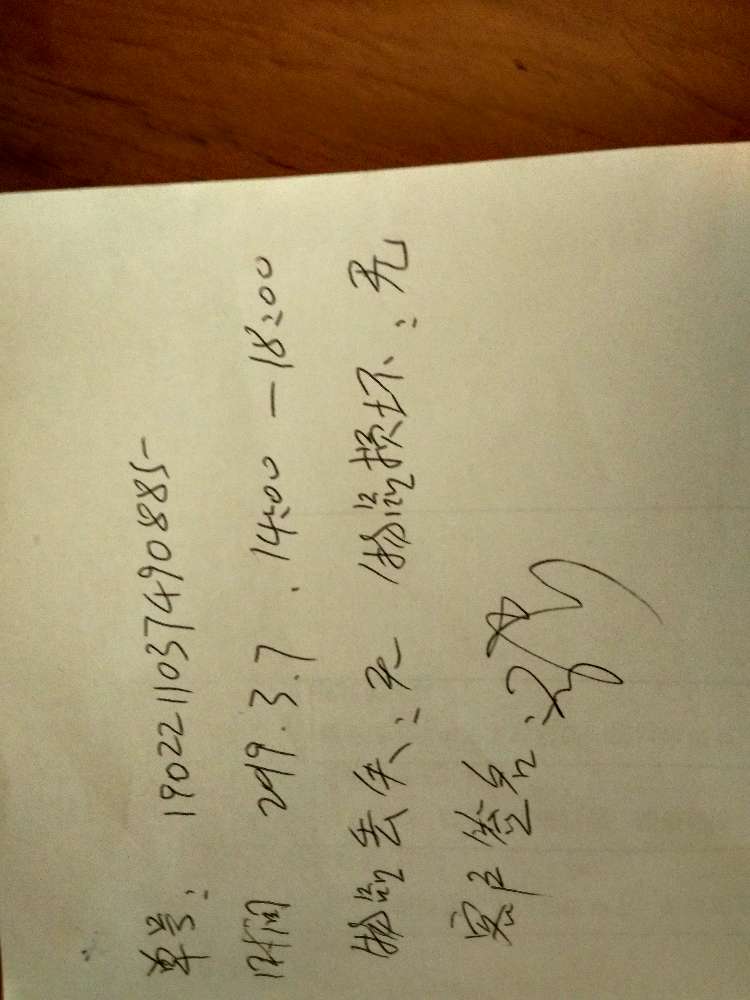 单号: 190221103749088​5
时间 2019.3.7. 14:00 — 18:00
物品丢失: 无 物品损坏: 无
客户签名: